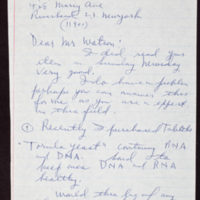 Mercy Ave
L.I. New York
(11901)
Dear Mr Watson:
I did read your
item in Sunday Newsday
Very good.
I do have a problem
perhaps you can answer this
for me as you are a expert
in this field.
① Recently I purchased Tablets
"Torula yeast" containing RNA
and DNA. Said to
keep ones DNA and RNA
healthy.
Would this be of any